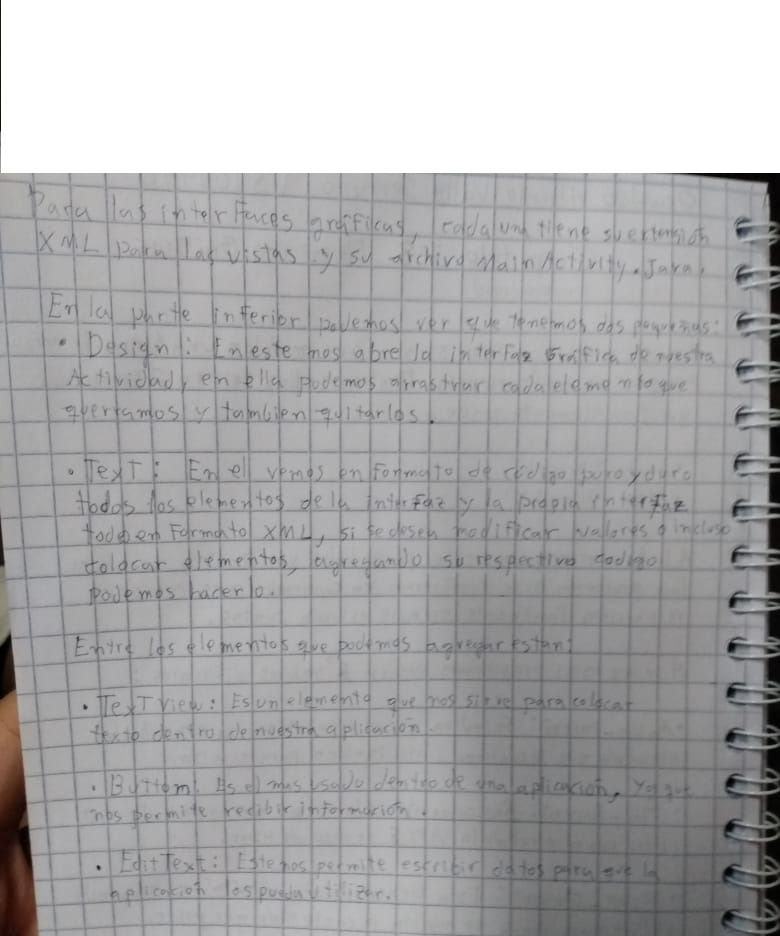 Para las interfaces gráficas, cada una tiene su extensión
XML para las vistas y su archivo MainActivity.Java.
En la parte inferior podemos ver que tenemos dos pequeñas:
• Design: En este nos abre la interfaz gráfica de nuestra
Actividad, en ella podemos arrastrar cada elemento que
querramos y tambien quitarlos.
• Text: En el vemos en formato de código puro y duro
todos los elementos de la interfaz y la propia interfaz
todo en Formato XML, si se desea modificar valores o incluso
colocar elementos, agregando su respectivo codigo
podemos hacerlo.
Entre los elementos que podemos agregar estan:
• TextView: Es un elemento que nos sirve para colocar
texto dentro de nuestra aplicación.
• Buttom: Es el mas usado dentro de una aplicación, ya que
nos permite recibir información.
• EditText: Este nos permite escribir datos para que la
aplicación los pueda utilizar.